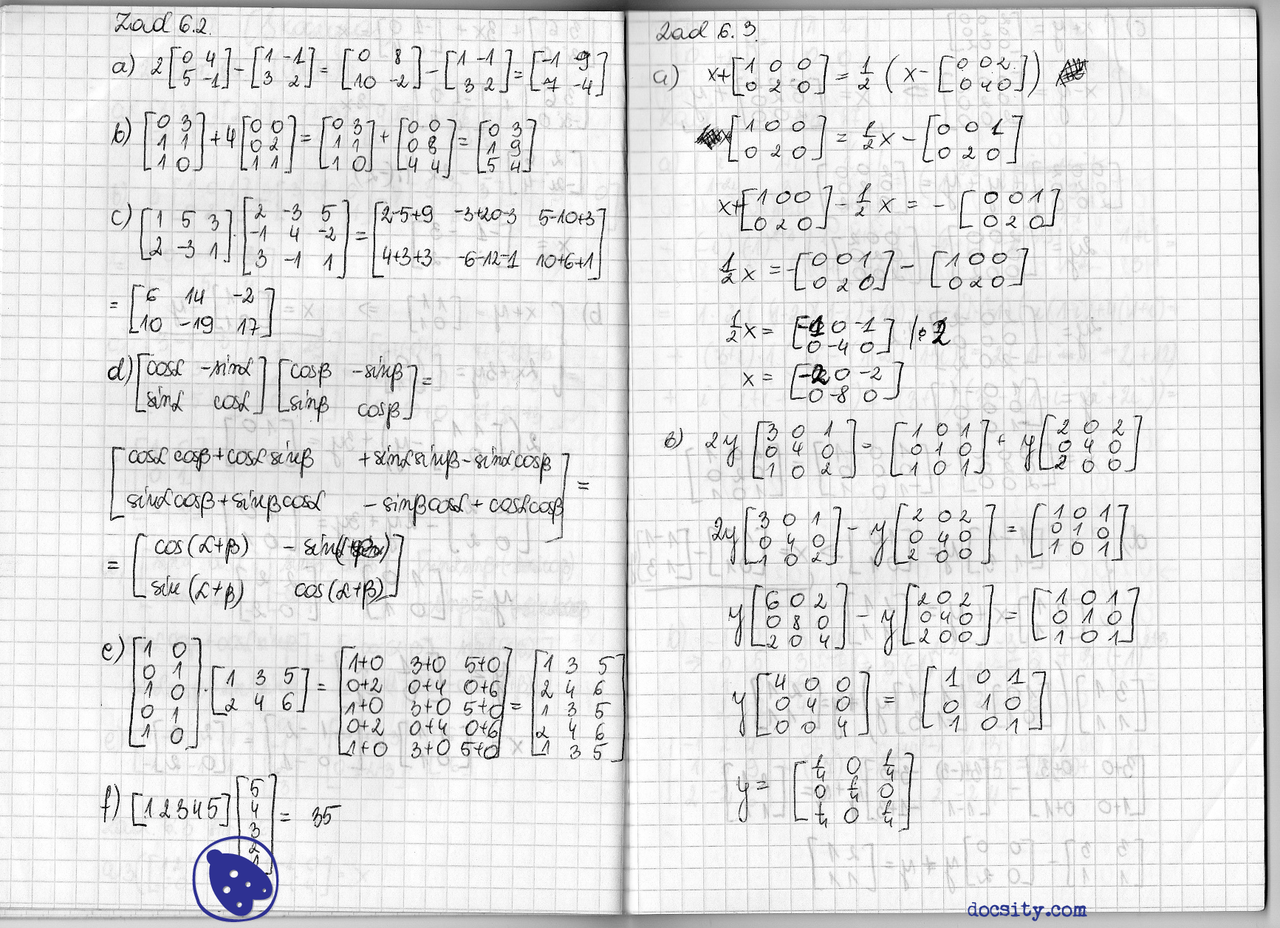 Zad 6.2.
a) 2 [0 4; 5 -1] - [1 -1; 3 2] = [0 8; 10 -2] - [1 -1; 3 2] = [-1 9; 7 -4]
b) [0 3; 1 1; 1 0] + 4 [0 0; 0 2; 1 1] = [0 3; 1 1; 1 0] + [0 0; 0 8; 4 4] = [0 3; 1 9; 5 4]
c) [1 5 3; 2 -3 1] · [2 -3 5; -1 4 -2; 3 -1 1] = [2-5+9 -3+20-3 5-10+3; 4+3+3 -6-12-1 10+6+1]
= [6 14 -2; 10 -19 17]
d) [cosα -sinα; sinα cosα] [cosβ -sinβ; sinβ cosβ] =
[cosα cosβ + cosα sinβ + sinα sinβ - sinα cosβ; sinα cosβ + sinβ cosα - sinβ cosα + cosα cosβ] =
= [cos(α+β) - sin(α+β); sin(α+β) cos(α+β)]
e) [1 0; 0 1; 1 0; 0 1; 1 0] · [1 3 5; 2 4 6] = [1+0 3+0 5+0; 0+2 0+4 0+6; 1+0 3+0 5+0; 0+2 0+4 0+6; 1+0 3+0 5+0] = [1 3 5; 2 4 6; 1 3 5; 2 4 6; 1 3 5]
f) [1 2 3 4 5] [5; 4; 3; 2; 1] = 35
Zad 6.3.
a) x + [1 0 0; 0 2 0] = 1/2 (x - [0 0 2; 0 4 0])
[1 0 0; 0 2 0] = 1/2 x - [0 0 1; 0 2 0]
x + [1 0 0; 0 2 0] - 1/2 x = - [0 0 1; 0 2 0]
1/2 x = - [0 0 1; 0 2 0] - [1 0 0; 0 2 0]
1/2 x = [-1 0 -1; 0 -4 0] |·2
x = [-2 0 -2; 0 -8 0]
b) 2y [3 0 1; 0 4 0; 1 0 2] = [1 0 1; 0 1 0; 1 0 1] + y [2 0 2; 0 4 0; 2 0 0]
2y [3 0 1; 0 4 0; 1 0 2] - y [2 0 2; 0 4 0; 2 0 0] = [1 0 1; 0 1 0; 1 0 1]
y [6 0 2; 0 8 0; 2 0 4] - y [2 0 2; 0 4 0; 2 0 0] = [1 0 1; 0 1 0; 1 0 1]
y [4 0 0; 0 4 0; 0 0 4] = [1 0 1; 0 1 0; 1 0 1]
y = [1/4 0 1/4; 0 1/4 0; 1/4 0 1/4]
docsity.com